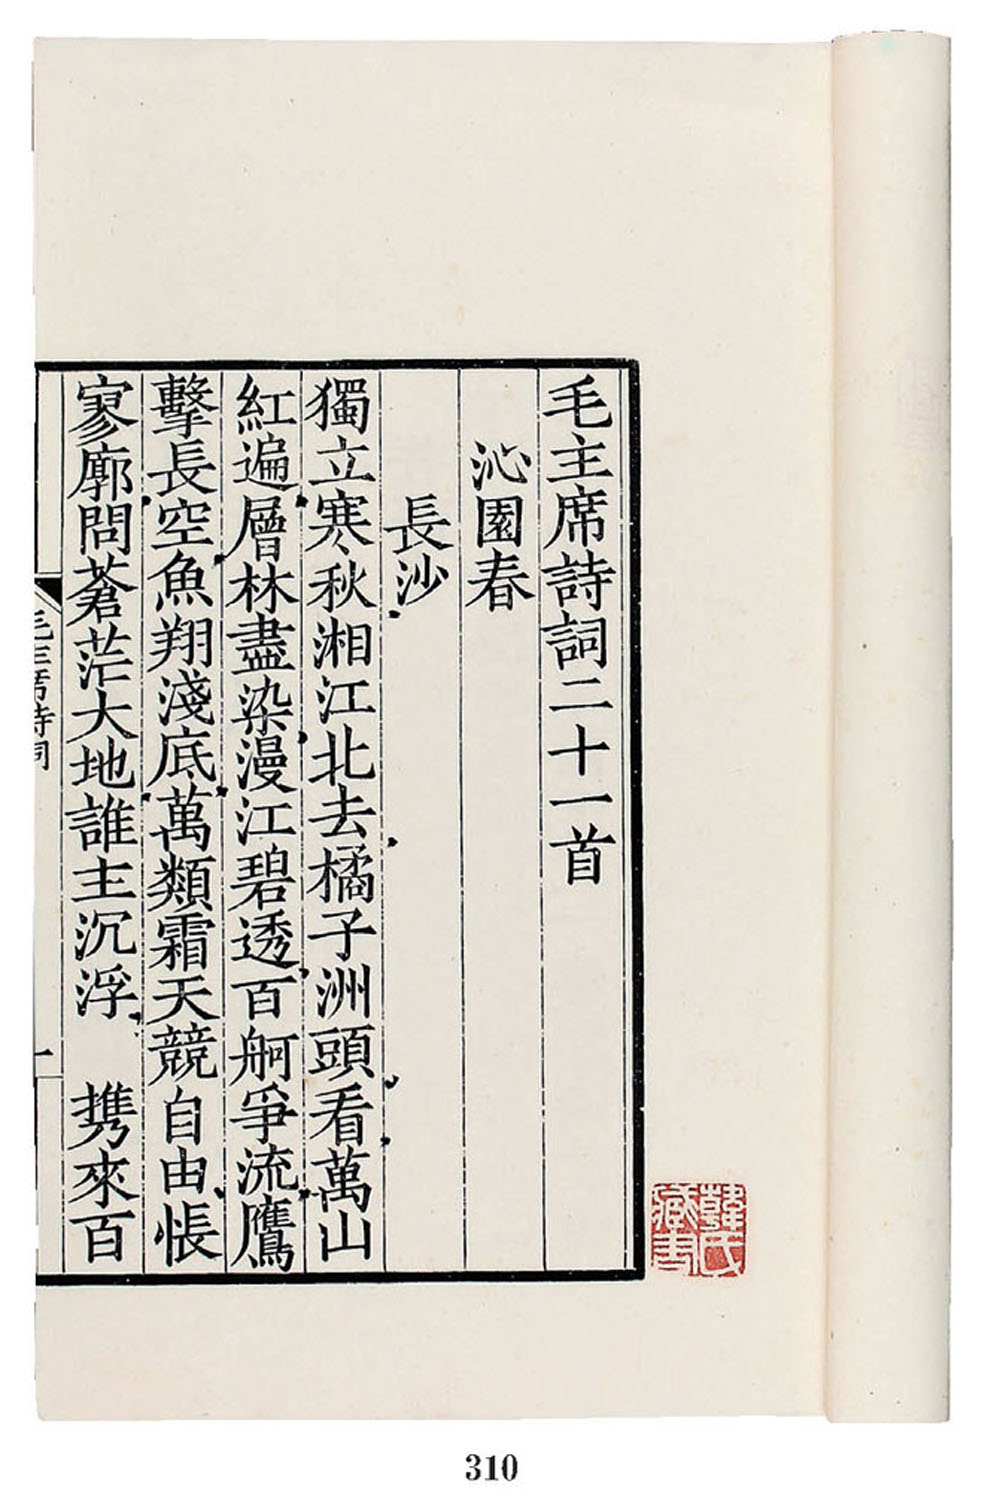 毛主席詩詞二十一首
沁園春
長沙
獨立寒秋湘江北去橘子洲頭看萬山
紅遍層林盡染漫江碧透百舸爭流鷹
擊長空魚翔淺底萬類霜天競自由悵
寥廓問蒼茫大地誰主沉浮　携來百
毛主席詩詞
一
韓氏藏書
310